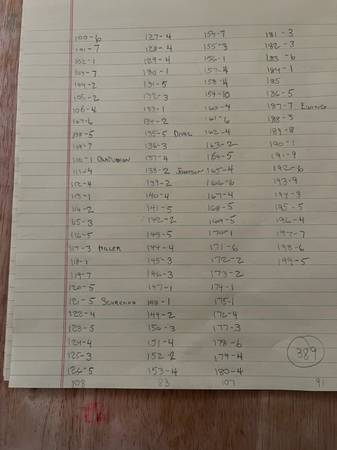 100-6
101-7
102-1
103-7
104-2
105-2
106-4
107-6
108-5
109-7
110-1
111-4
112-4
113-1
114-2
115-3
116-5
117-3 MILLER
118-1
119-7
120-5
121-5
122-4
123-5
124-4
125-3
126-5
108
127-4
128-4
129-4
130-1
131-5
132-3
133-1
134-2
135-5
136-3
137-4
138-2 JOHNSON
139-2
140-4
141-5
142-2
143-5
144-4
145-3
146-3
147-1
148-1
149-2
150-3
151-4
152-2
153-4
83
154-7
155-3
156-1
157-4
158-4
159-10
160-4
161-6
162-4
163-2
164-5
165-4
166-6
167-4
168-5
169-5
170-1
171-6
172-2
173-2
174-1
175-1
176-4
177-3
178-6
179-4
180-4
107
181-3
182-3
183-6
184-1
185
186-5
187-7
188-3
189-8
190-1
191-9
192-6
193-9
194-3
195-5
196-4
197-7
198-6
199-5
389
91